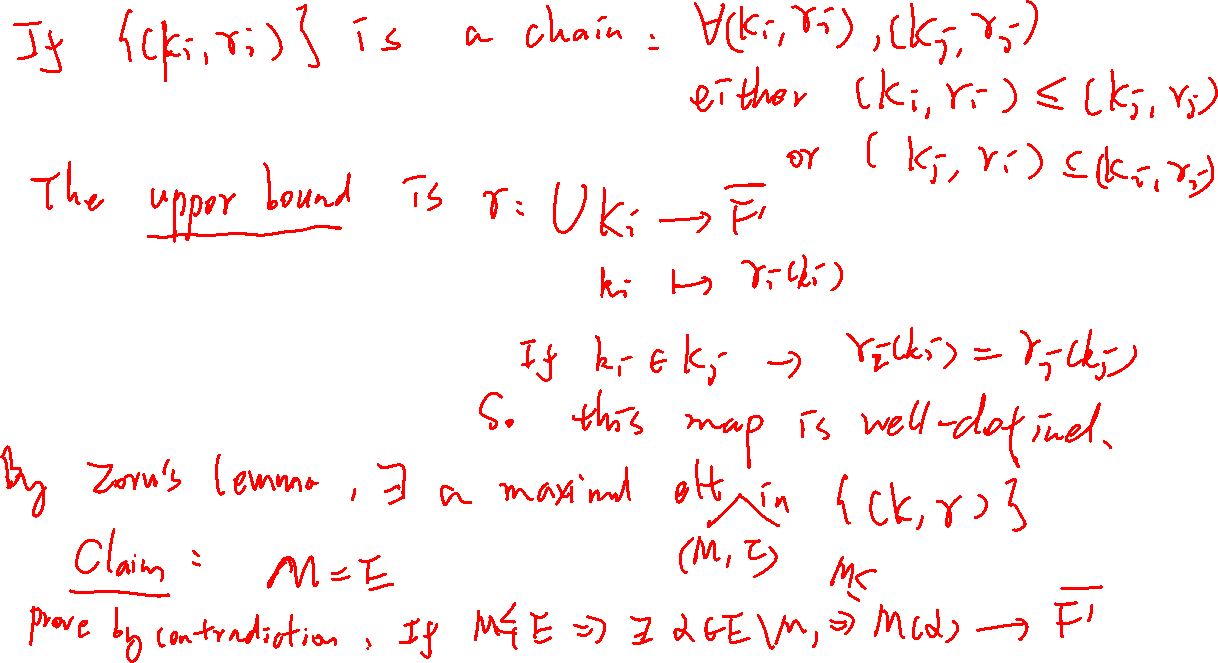 If {(k_i, r_i)} is a chain : ∀(k_i, r_i), (k_j, r_j)
either (k_i, r_i) ≤ (k_j, r_j)
or (k_j, r_i) ≤ (k_i, r_j)
The upper bound is r: ∪k_i → \overline{F'}
k_i ↦ r_i(k_i)
If k_i ∈ k_j → r_i(k_i) = r_j(k_j)
So this map is well-defined.
By Zorn's lemma, ∃ a maximal elt in {(k, r)}
(M, τ)
Claim : M = E
M<
prove by contradiction, If M ⊊ E ⇒ ∃ α ∈ E \ M, ⇒ M(α) → \overline{F'}